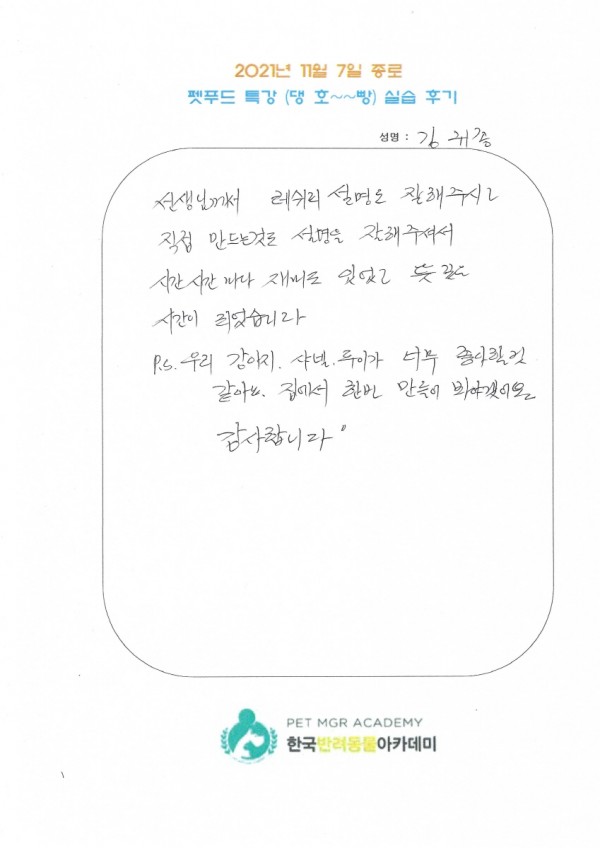 2021년 11월 7일 종로
펫푸드 특강 (댕 호~~빵) 실습 후기
성명 : 김 귀종
선생님께서 레쉬피 설명도 잘해주시고
직접 만드는것도 설명을 잘해주셔서
시간시간 마다 재미도 있었고 뜻 깊은
시간이 되었습니다
P.S. 우리 강아지. 샤넬. 루이가 너무 좋아할것
같아요. 집에서 한번 만들어 봐야겠어요
감사합니다"
PET MGR ACADEMY
한국반려동물아카데미